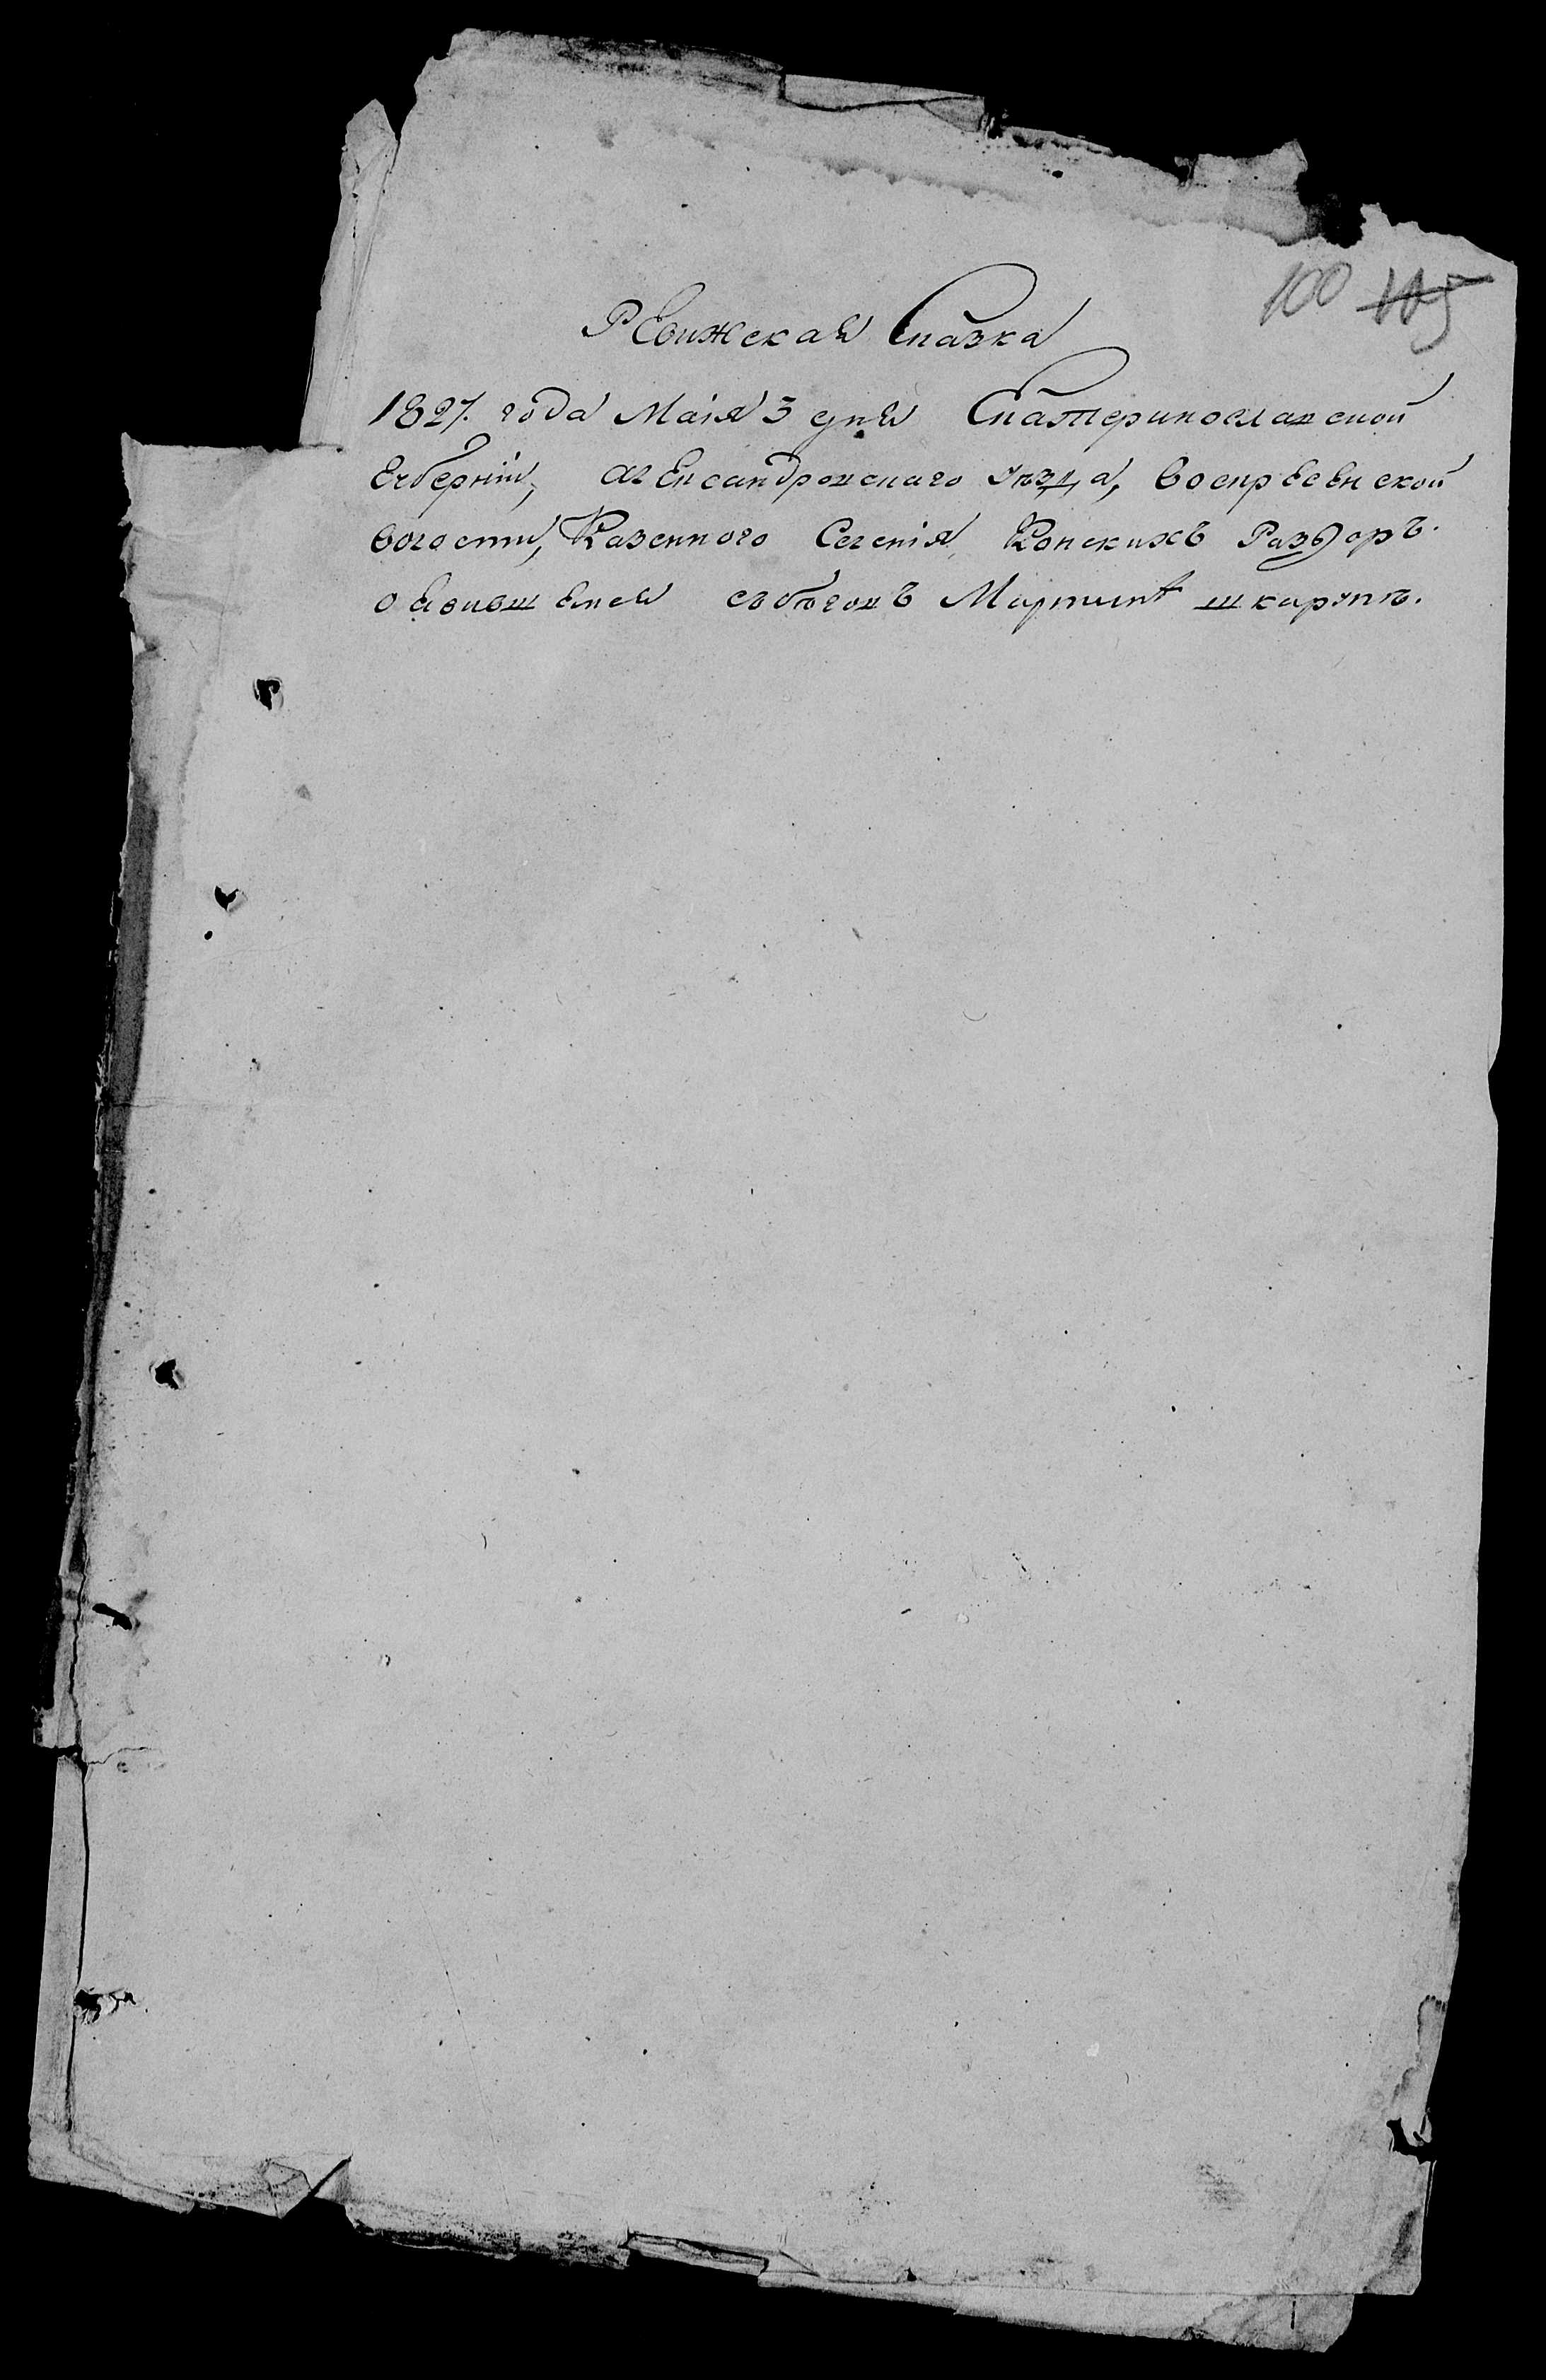 100 105
Ревижская Сказка
1827. года Маія 3 дня Екатеринославской
Губерніи, Александровскаго уѣзда, воскресенской
волости, Казенного Селенія Конскихъ Раздоръ.
о явившемся съ бѣговъ Мартинѣ шкарупѣ.